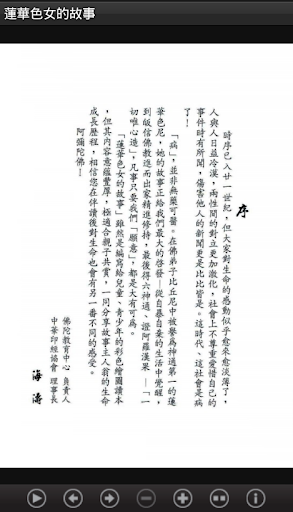 蓮華色女的故事
序
時序已入廿一世紀，但大家對生命的感動似乎愈來愈淡薄了，
人與人日益冷漠，兩性間的對立更加激化，社會上不尊重愛惜自己的
事件時有所聞，傷害他人的新聞更是比比皆是。這時代、這社會是病
了！
「病」，並非無藥可醫。在佛弟子比丘尼中被譽為神通第一的蓮
華色尼，她的故事正給我們最大的啟發—從自暴自棄的生活中覺醒，
到皈信佛教進而出家精進修持，最後得六神通、證阿羅漢果—「一
切唯心造」，凡事只要我們「願意」，都是大有可為。
「蓮華色女的故事」雖然是編寫給兒童、青少年的彩色繪圖讀本
，但其內容意蘊豐厚，極適合親子共賞，一同分享故事主人翁的生命
成長歷程，相信您在伴讀後對生命也會有另一番不同的感受。
阿彌陀佛！
佛陀教育中心 負責人
中華印經協會 理事長
海濤